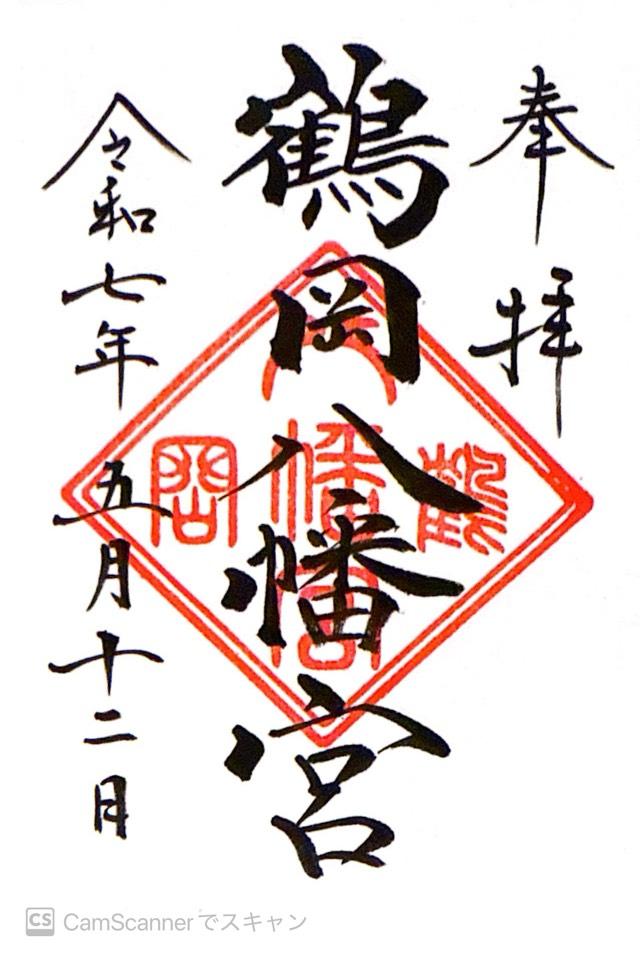 奉拝
鶴岡八幡宮
令和七年五月十二日
鶴
八幡宮
岡
CS CamScannerでスキャン